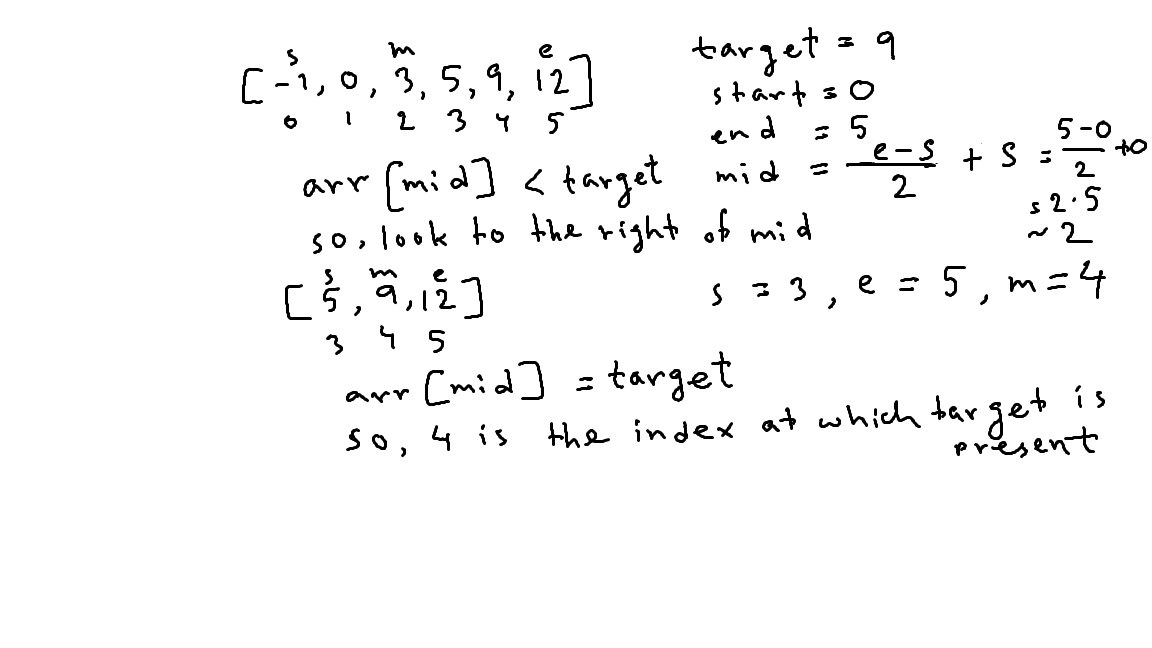 s m e
[-1, 0, 3, 5, 9, 12]
0 1 2 3 4 5
target = 9
start = 0
end = 5
mid = e-s/2 + s = 5-0/2 +0
= 2.5
~ 2
arr [mid] < target
so, look to the right of mid
s m e
[5, 9, 12]
3 4 5
s = 3, e = 5, m = 4
arr [mid] = target
so, 4 is the index at which target is
present